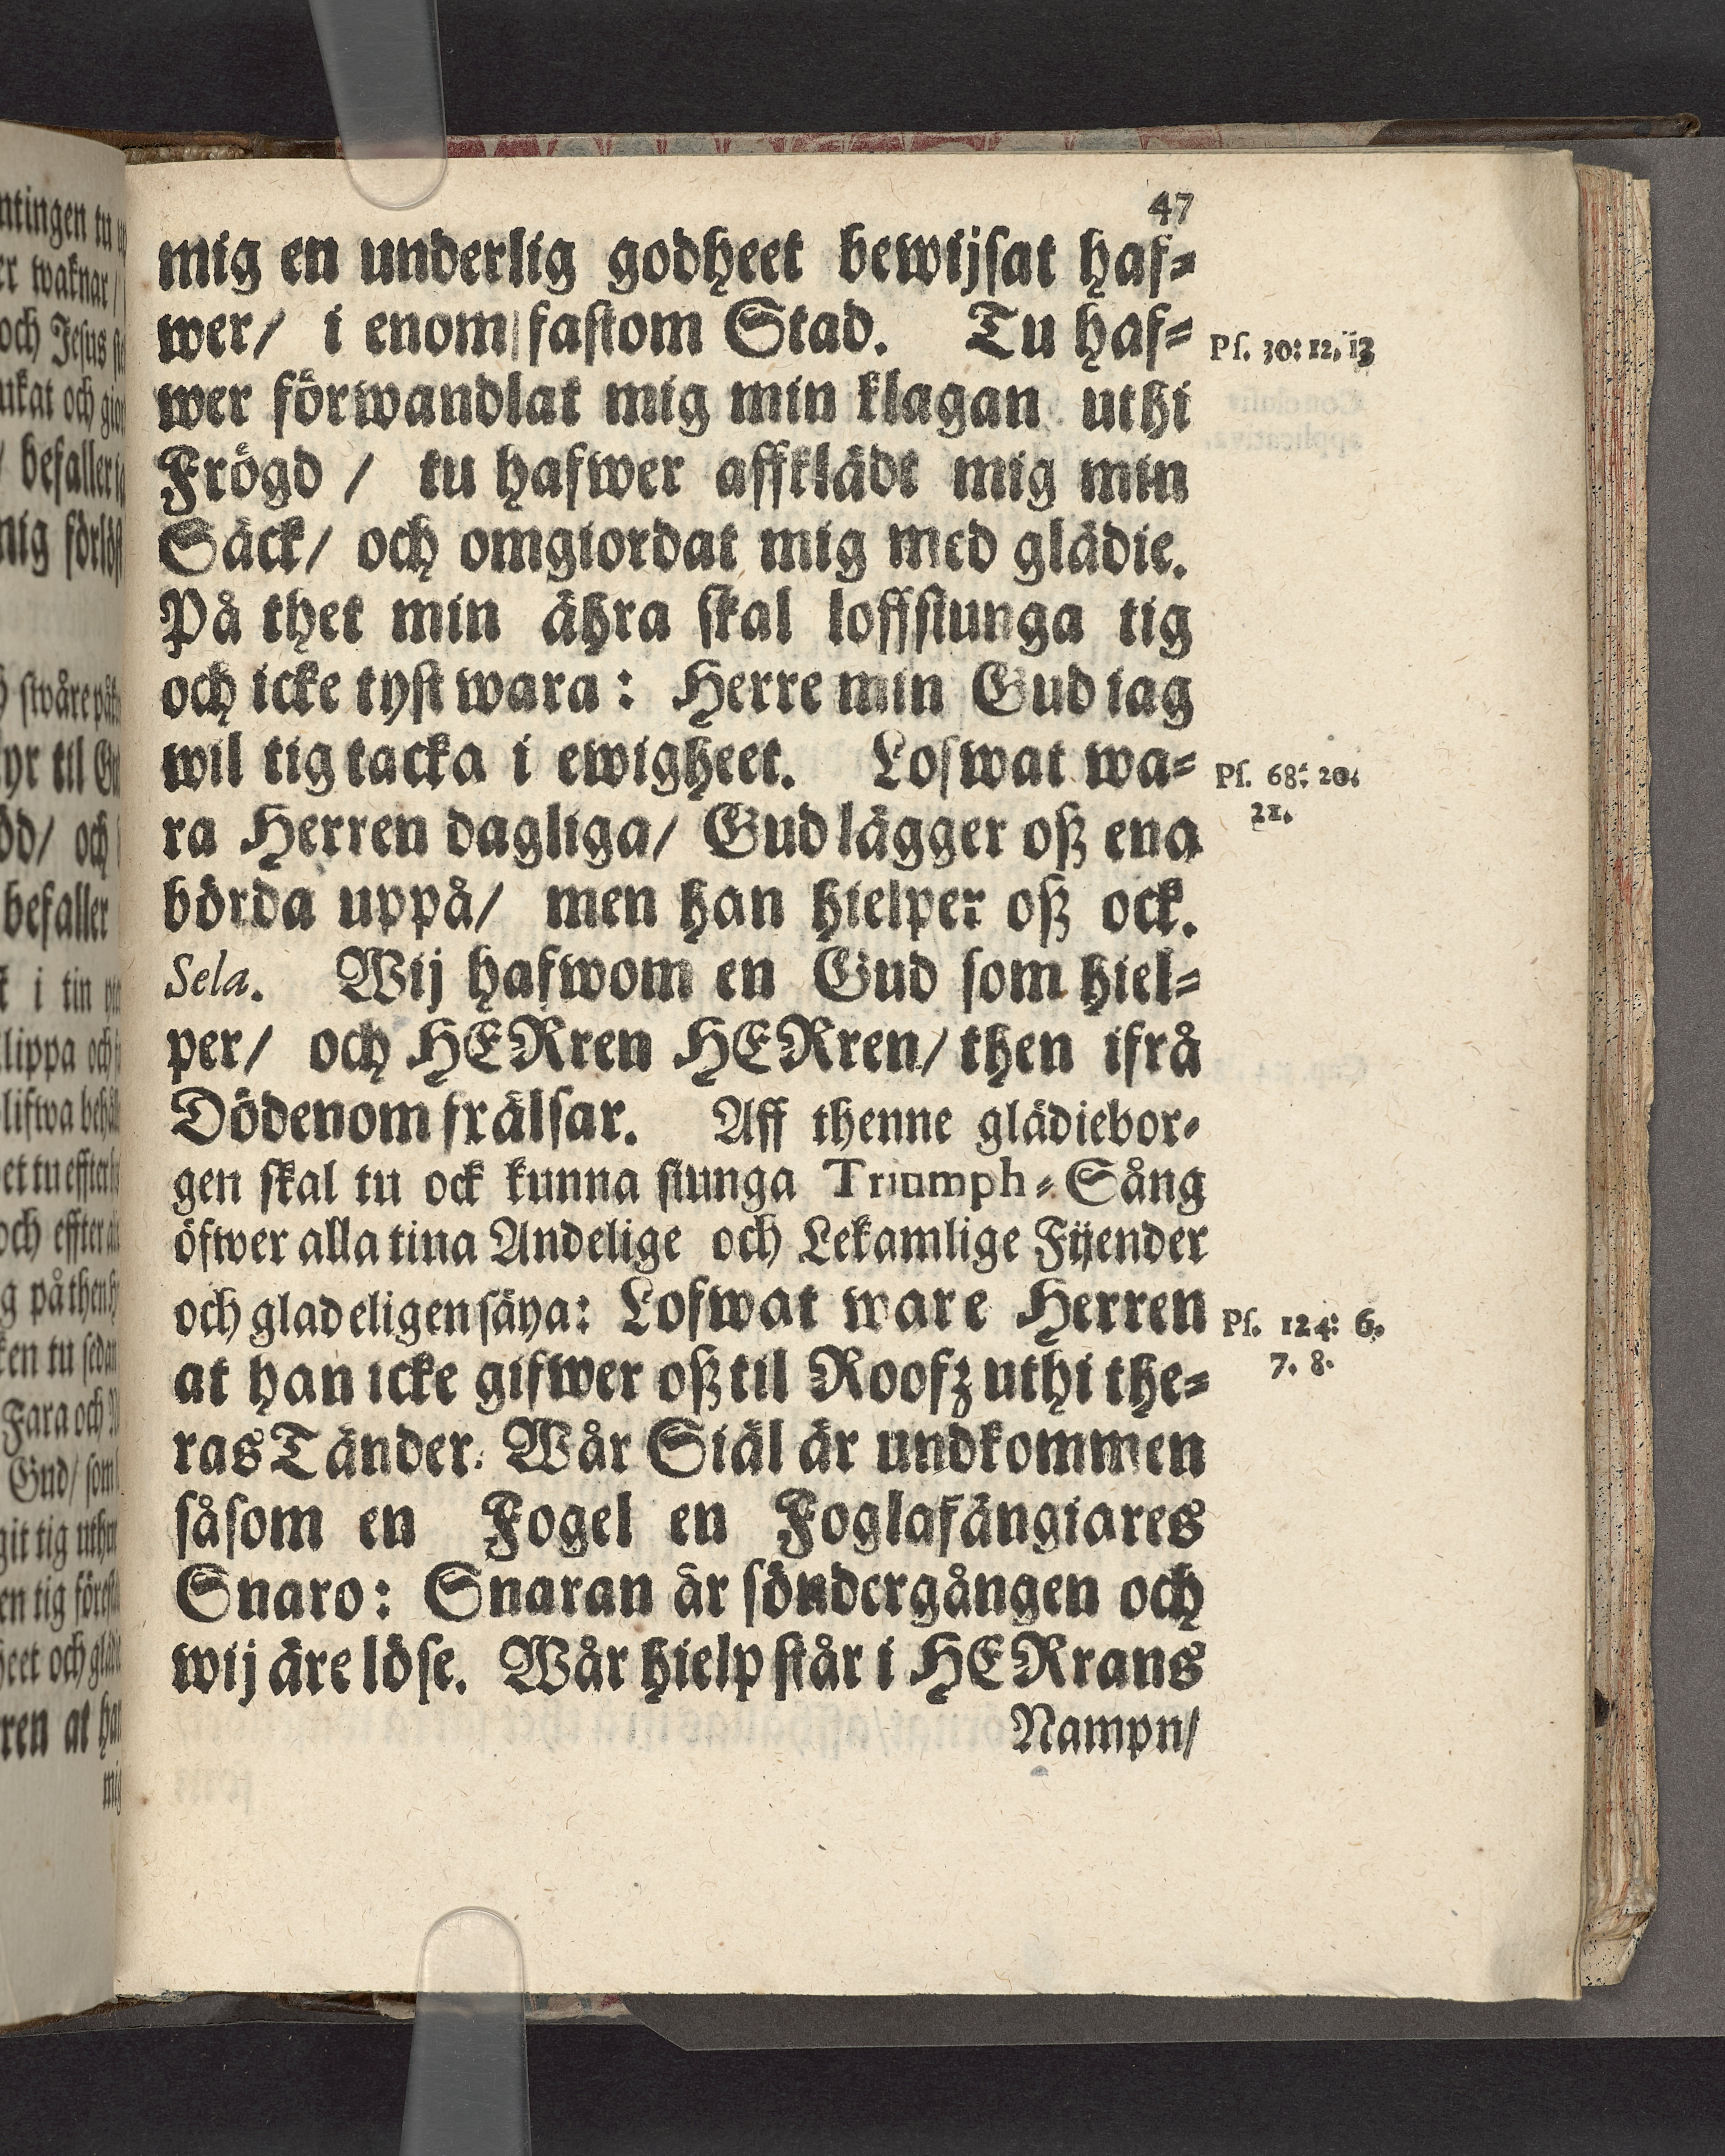 47
mig en underlig godheet bewijsat haf-
wer/ i enom fastom Stad. Tu haf-
Ps. 30: 12, 13
wer förwandlat mig min klagan uthi
Frögd / tu hafwer affklädt mig min
Säck/ och omgiordat mig med glädie.
På thet min ähra skal loffsiunga tig
och icke tyst wara: Herre min Gud iag
wil tig tacka i ewigheet. Lofwat wa-
Ps. 68: 20.
21.
ra Herren dagliga/ Gud lägger oß ena
börda uppå/ men han hielper oß ock.
Sela. Wij hafwom en Gud som hiel-
per/ och HERren HERren/ then ifrå
Dödenom frälsar. Aff thenne glädiebor-
gen skal tu ock kunna siunga Triumph-Sång
öfwer alla tina Andelige och Lekamlige Fijender
och gladeligen säya: Lofwat ware Herren
Ps. 124: 6.
7. 8.
at han icke gifwer oß til Roofz uthi the-
ras Tänder. Wår Siäl är undkommen
såsom en Fogel en Foglafängiares
Snaro: Snaran är söndergången och
wij äre löse. Wår hielp står i HERrans
Nampn/